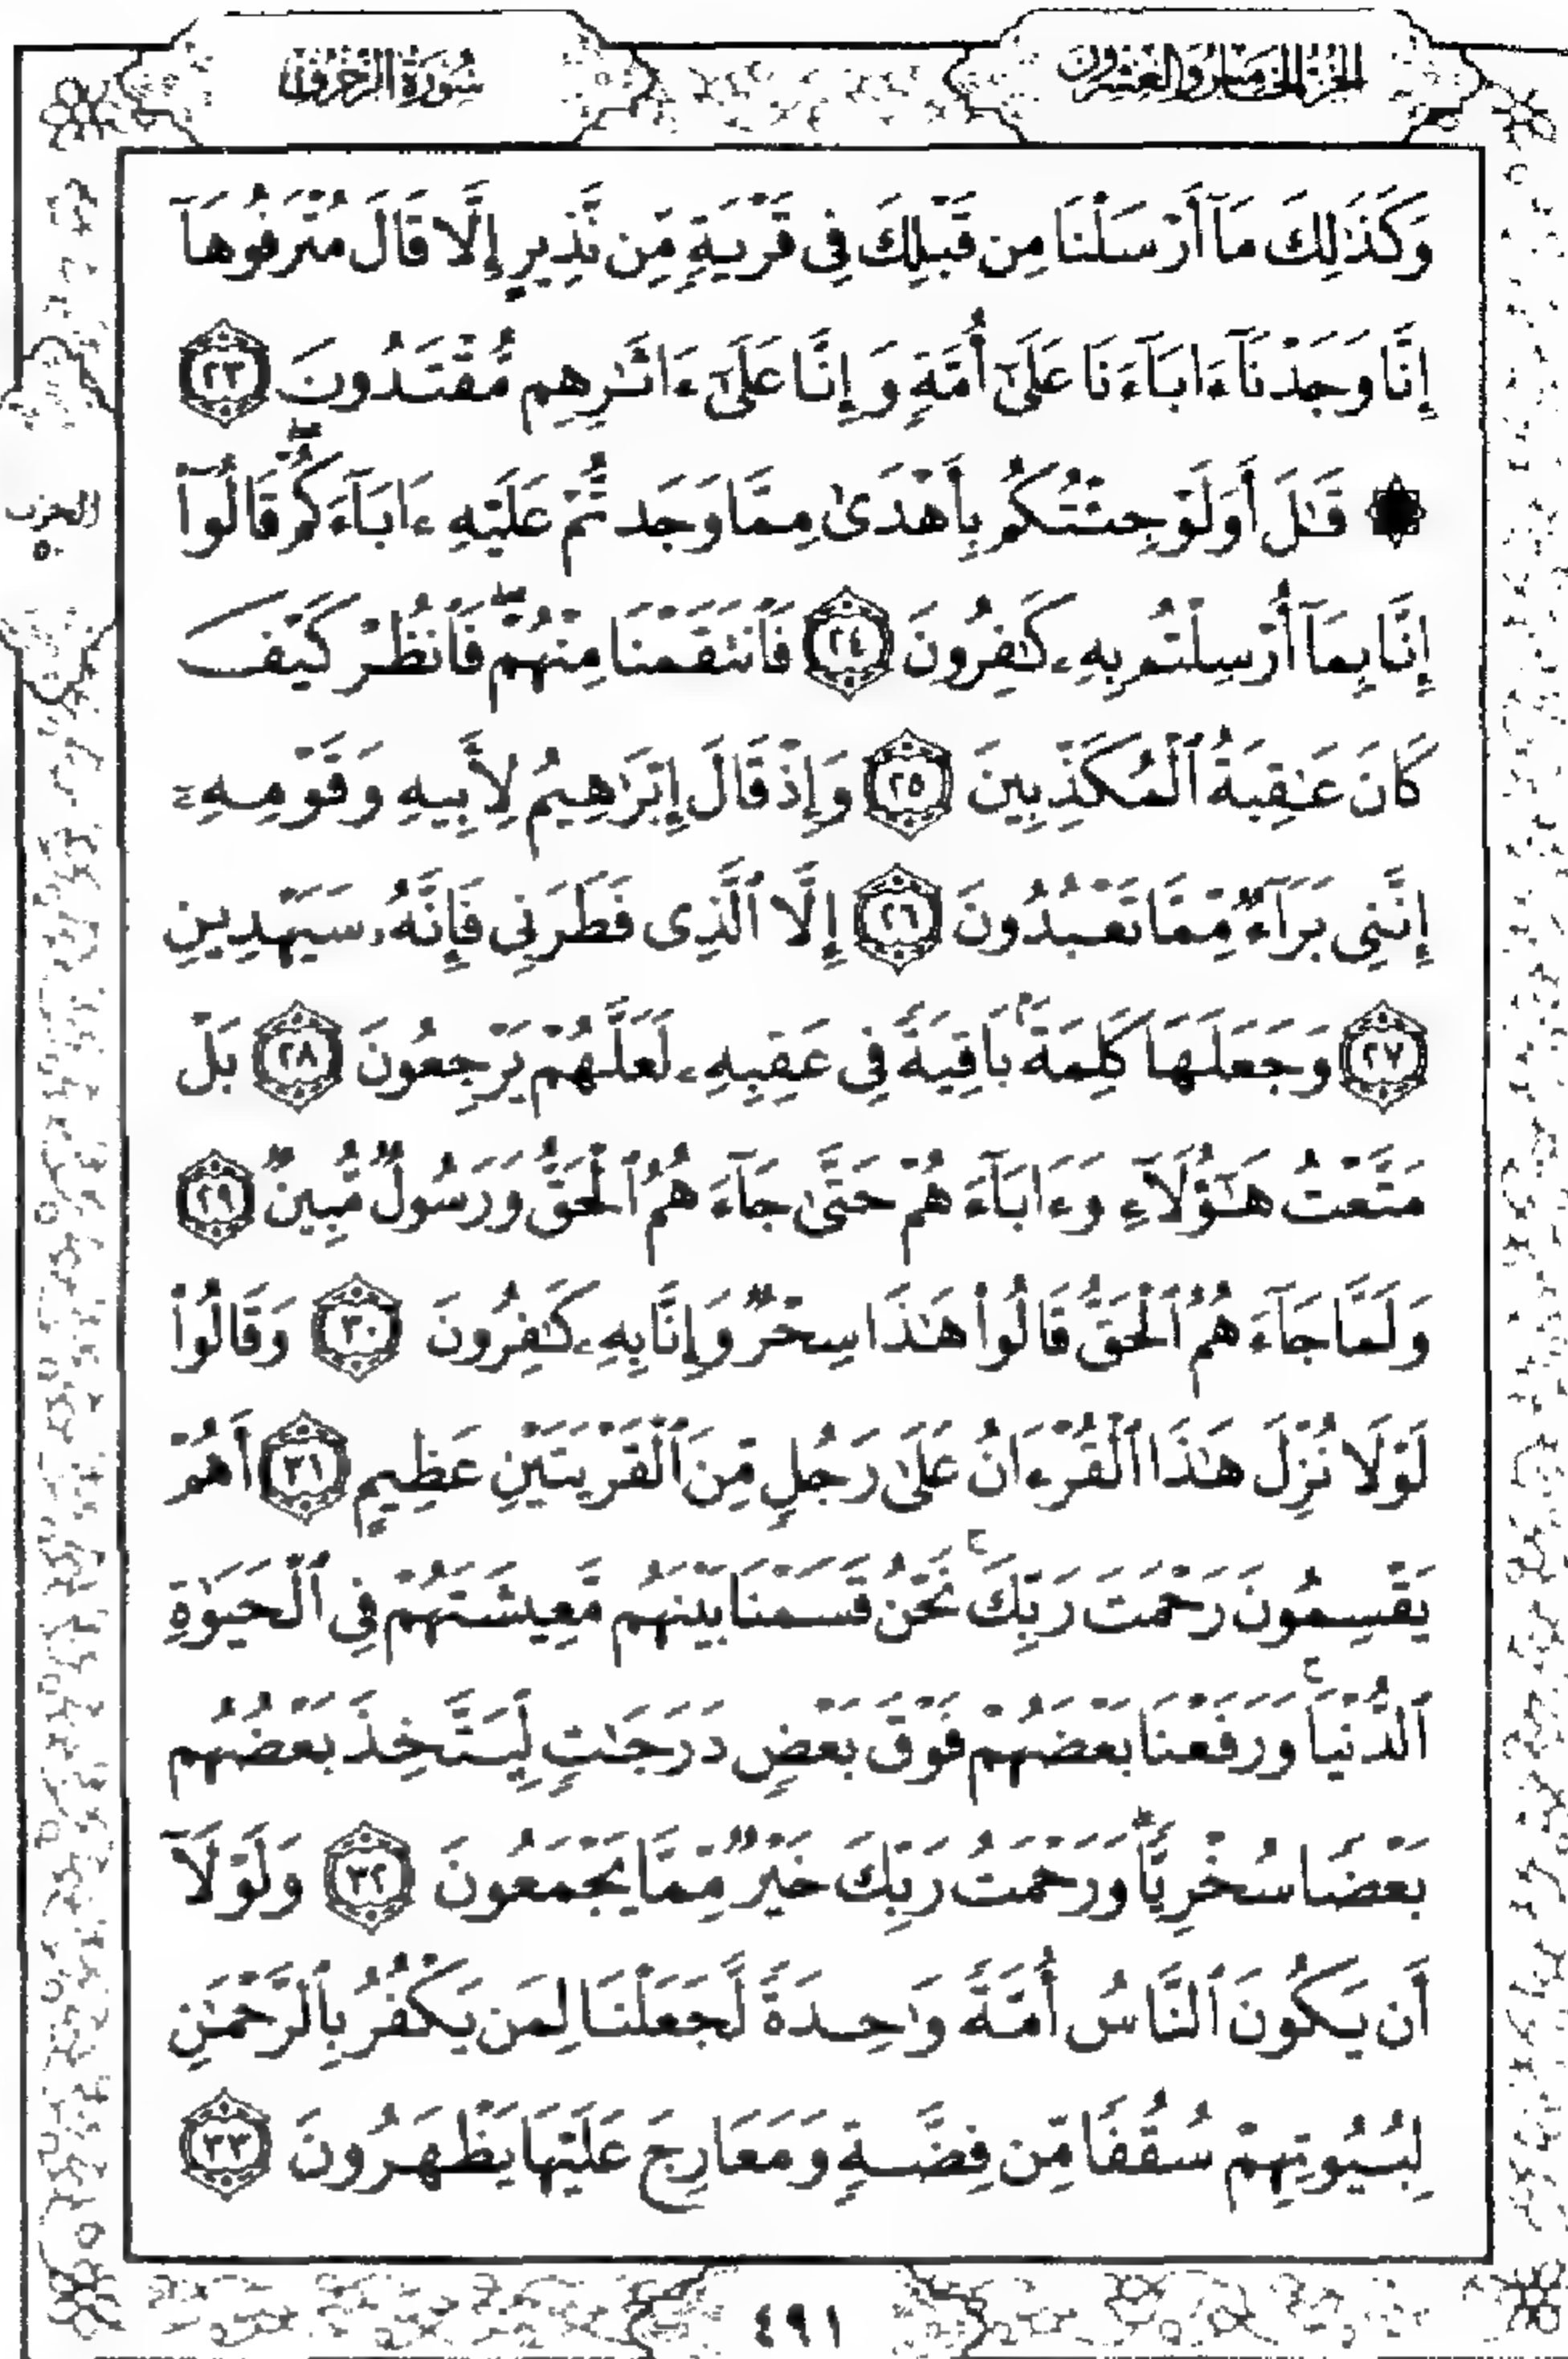 الجزء الخامس والعشرون
سورة الزخرف
وَكَذَٰلِكَ مَآ أَرۡسَلۡنَا مِن قَبۡلِكَ فِي قَرۡيَةٖ مِّن نَّذِيرٍ إِلَّا قَالَ مُتۡرَفُوهَآ
إِنَّا وَجَدۡنَآ ءَابَآءَنَا عَلَىٰٓ أُمَّةٖ وَإِنَّا عَلَىٰٓ ءَاثَٰرِهِم مُّقۡتَدُونَ ٢٣
۞ قَٰلَ أَوَلَوۡ جِئۡتُكُم بِأَهۡدَىٰ مِمَّا وَجَدتُّمۡ عَلَيۡهِ ءَابَآءَكُمۡۖ قَالُوٓاْ
إِنَّا بِمَآ أُرۡسِلۡتُم بِهِۦ كَٰفِرُونَ ٢٤ فَٱنتَقَمۡنَا مِنۡهُمۡۖ فَٱنظُرۡ كَيۡفَ
كَانَ عَٰقِبَةُ ٱلۡمُكَذِّبِينَ ٢٥ وَإِذۡ قَالَ إِبۡرَٰهِيمُ لِأَبِيهِ وَقَوۡمِهِۦٓ
إِنَّنِي بَرَآءٞ مِّمَّا تَعۡبُدُونَ ٢٦ إِلَّا ٱلَّذِي فَطَرَنِي فَإِنَّهُۥ سَيَهۡدِينِ
٢٧ وَجَعَلَهَا كَلِمَةَۢ بَاقِيَةٗ فِي عَقِبِهِۦ لَعَلَّهُمۡ يَرۡجِعُونَ ٢٨ بَلۡ
مَتَّعۡتُ هَٰٓؤُلَآءِ وَءَابَآءَهُمۡ حَتَّىٰ جَآءَهُمُ ٱلۡحَقُّ وَرَسُولٞ مُّبِينٞ ٢٩
وَلَمَّا جَآءَهُمُ ٱلۡحَقُّ قَالُواْ هَٰذَا سِحۡرٞ وَإِنَّا بِهِۦ كَٰفِرُونَ ٣٠ وَقَالُواْ
لَوۡلَا نُزِّلَ هَٰذَا ٱلۡقُرۡءَانُ عَلَىٰ رَجُلٖ مِّنَ ٱلۡقَرۡيَتَيۡنِ عَظِيمٍ ٣١ أَهُمۡ
يَقۡسِمُونَ رَحۡمَتَ رَبِّكَۚ نَحۡنُ قَسَمۡنَا بَيۡنَهُم مَّعِيشَتَهُمۡ فِي ٱلۡحَيَوٰةِ
ٱلدُّنۡيَاۚ وَرَفَعۡنَا بَعۡضَهُمۡ فَوۡقَ بَعۡضٖ دَرَجَٰتٖ لِّيَتَّخِذَ بَعۡضُهُم
بَعۡضٗا سُخۡرِيّٗاۗ وَرَحۡمَتُ رَبِّكَ خَيۡرٞ مِّمَّا يَجۡمَعُونَ ٣٢ وَلَوۡلَآ
أَن يَكُونَ ٱلنَّاسُ أُمَّةٗ وَٰحِدَةٗ لَّجَعَلۡنَا لِمَن يَكۡفُرُ بِٱلرَّحۡمَٰنِ
لِبُيُوتِهِمۡ سُقُفٗا مِّن فِضَّةٖ وَمَعَارِجَ عَلَيۡهَا يَظۡهَرُونَ ٣٣
الحزب
٥٠
٤٩١